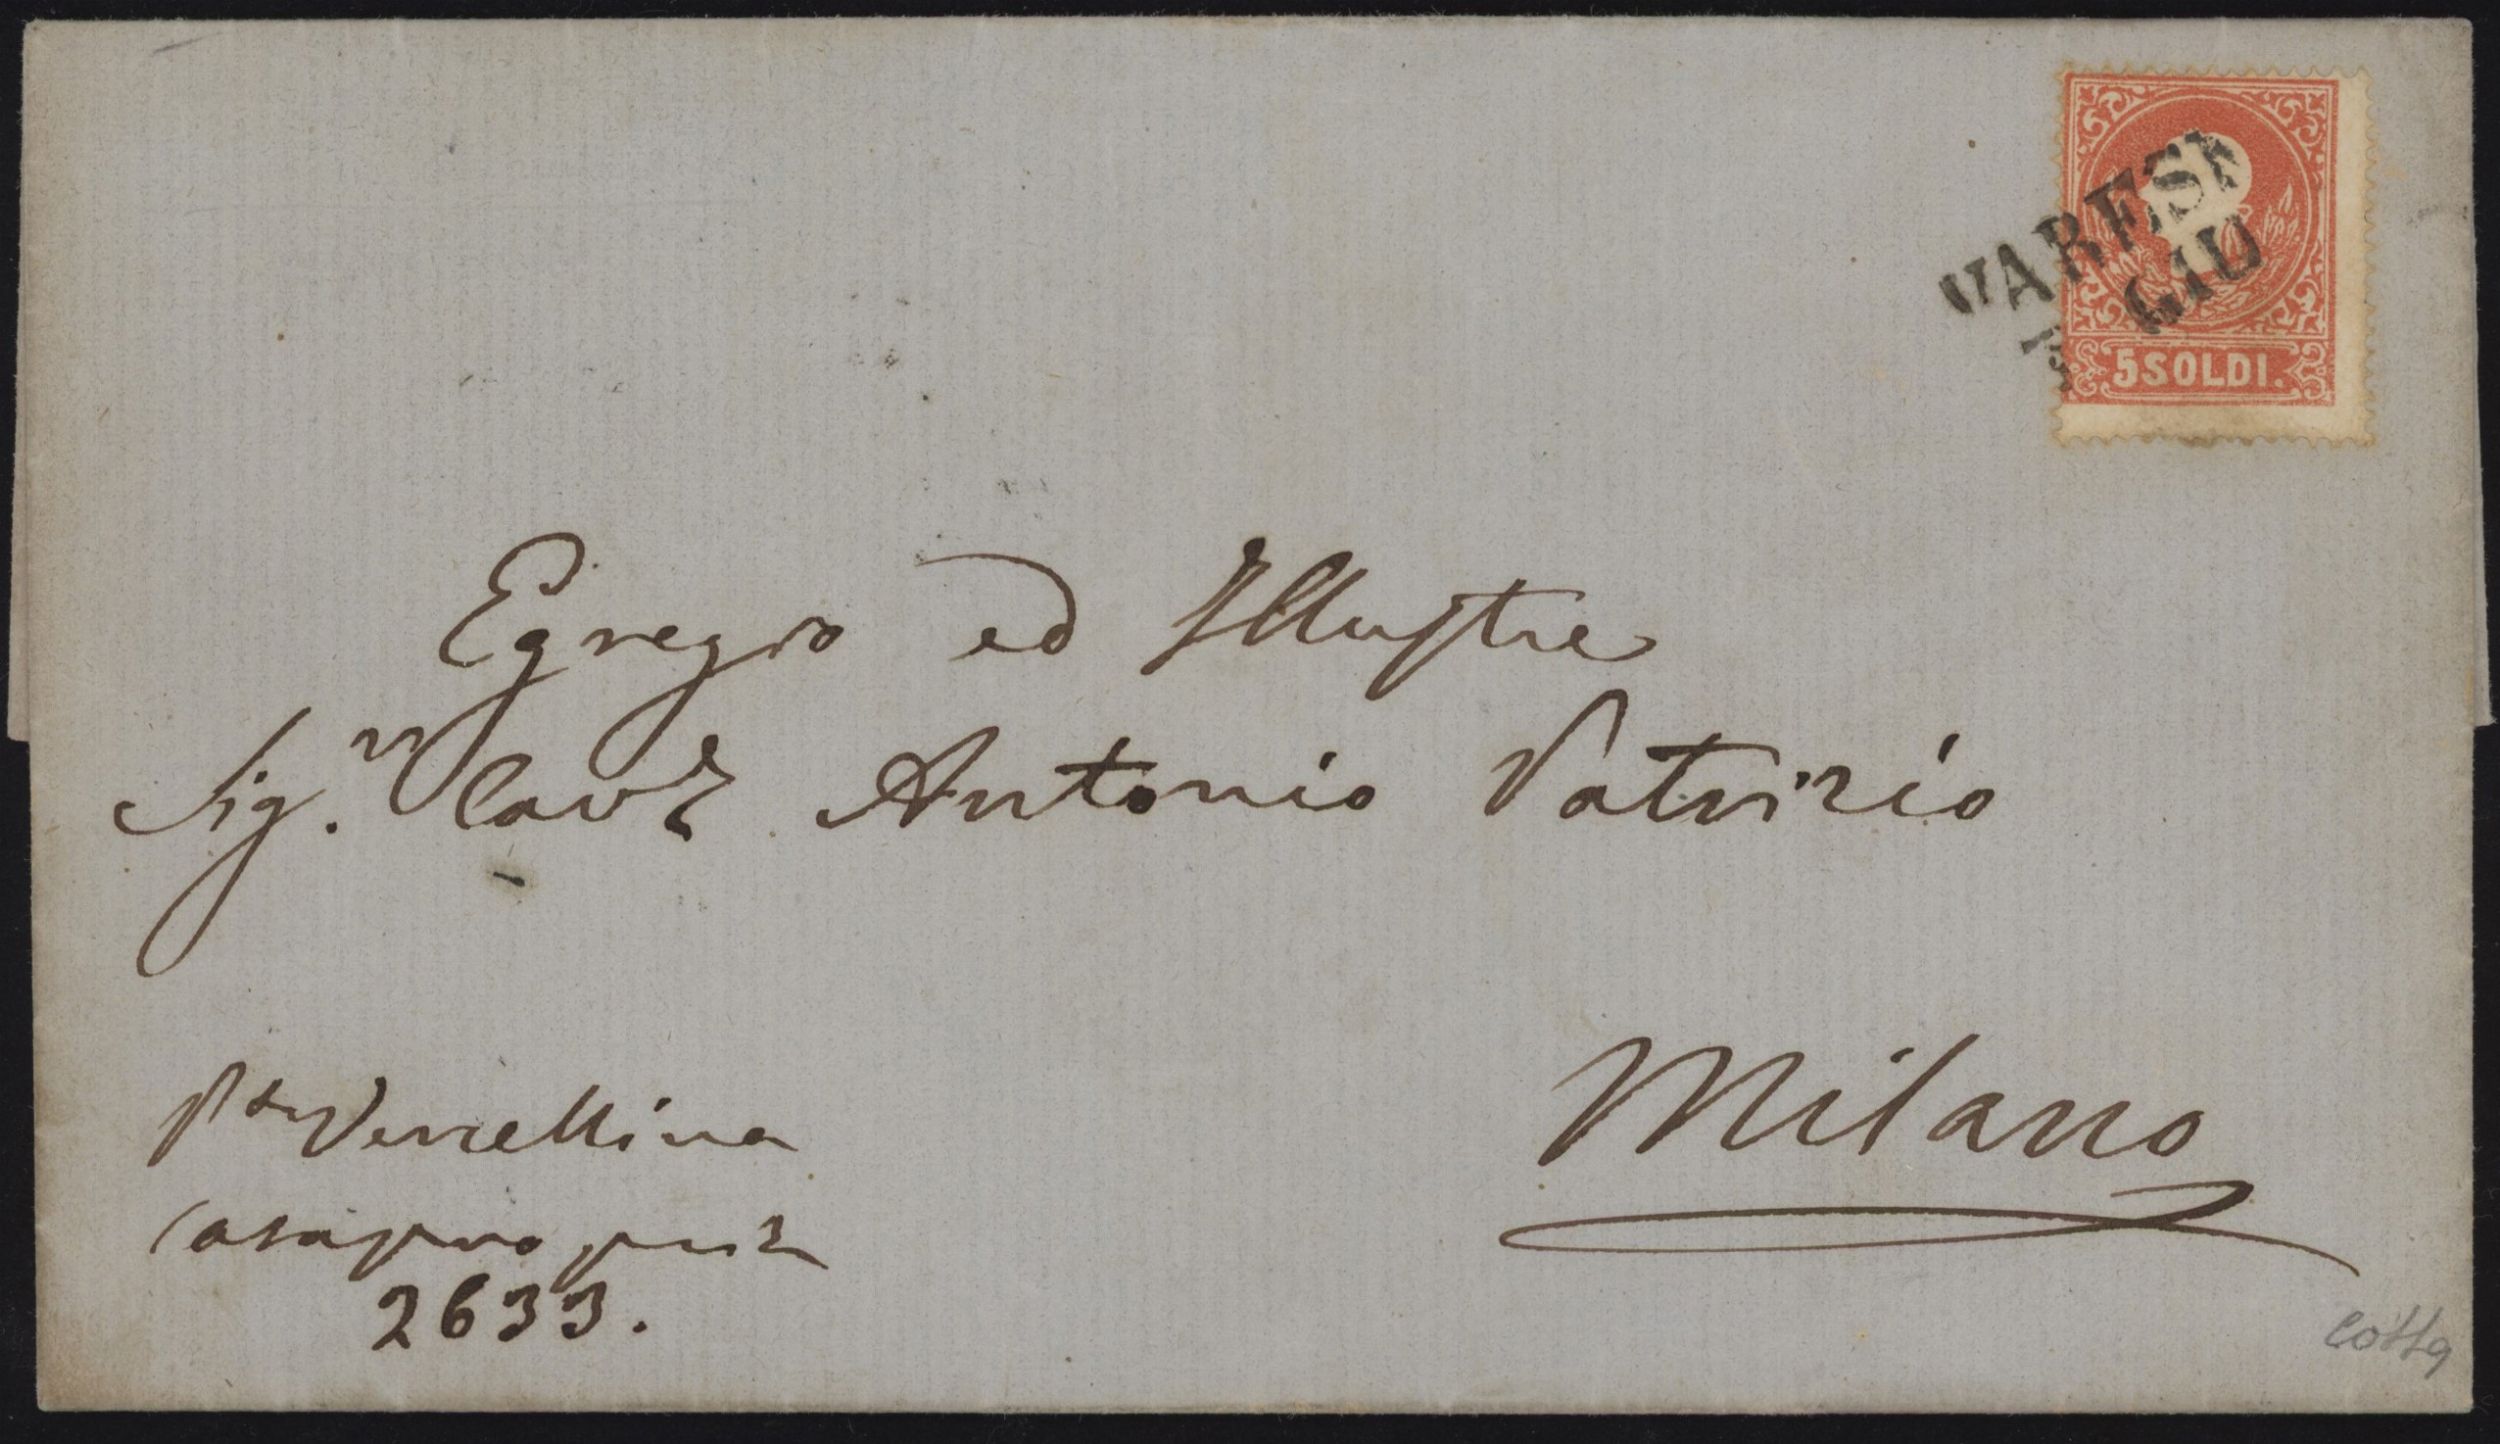 VARESE
GIU
5 SOLDI.
Egregio ed Illustre
Sig.r Cav.r Antonio Patrizio
Milano
P.ta Vercellina
Casa propria
2633.
Cotta